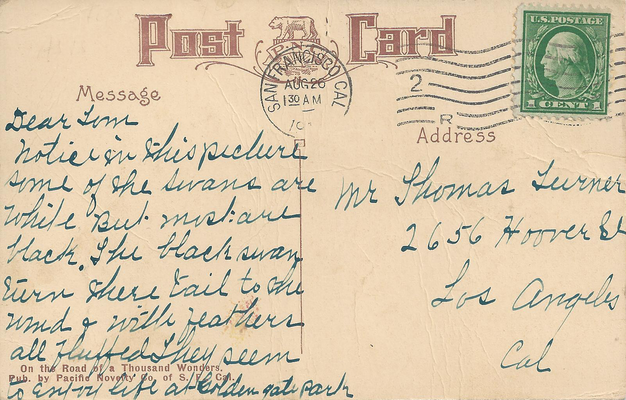 Post Card
SAN FRANCISCO, CAL.
AUG 26
1 30 AM
2
R
U.S. POSTAGE
1 CENT 1
Message
Address
Dear Tom
Notice in this picture
some of the swans are
white But most are
black. The black swan
turn there tail to the
wind & with feathers
all fluffed They seem
to enjoy life at Golden gate Park
Mr Thomas Turner
2656 Hoover St
Los Angeles
Cal
On the Road of a Thousand Wonders.
Pub. by Pacific Novelty Co. of S. F. Cal.